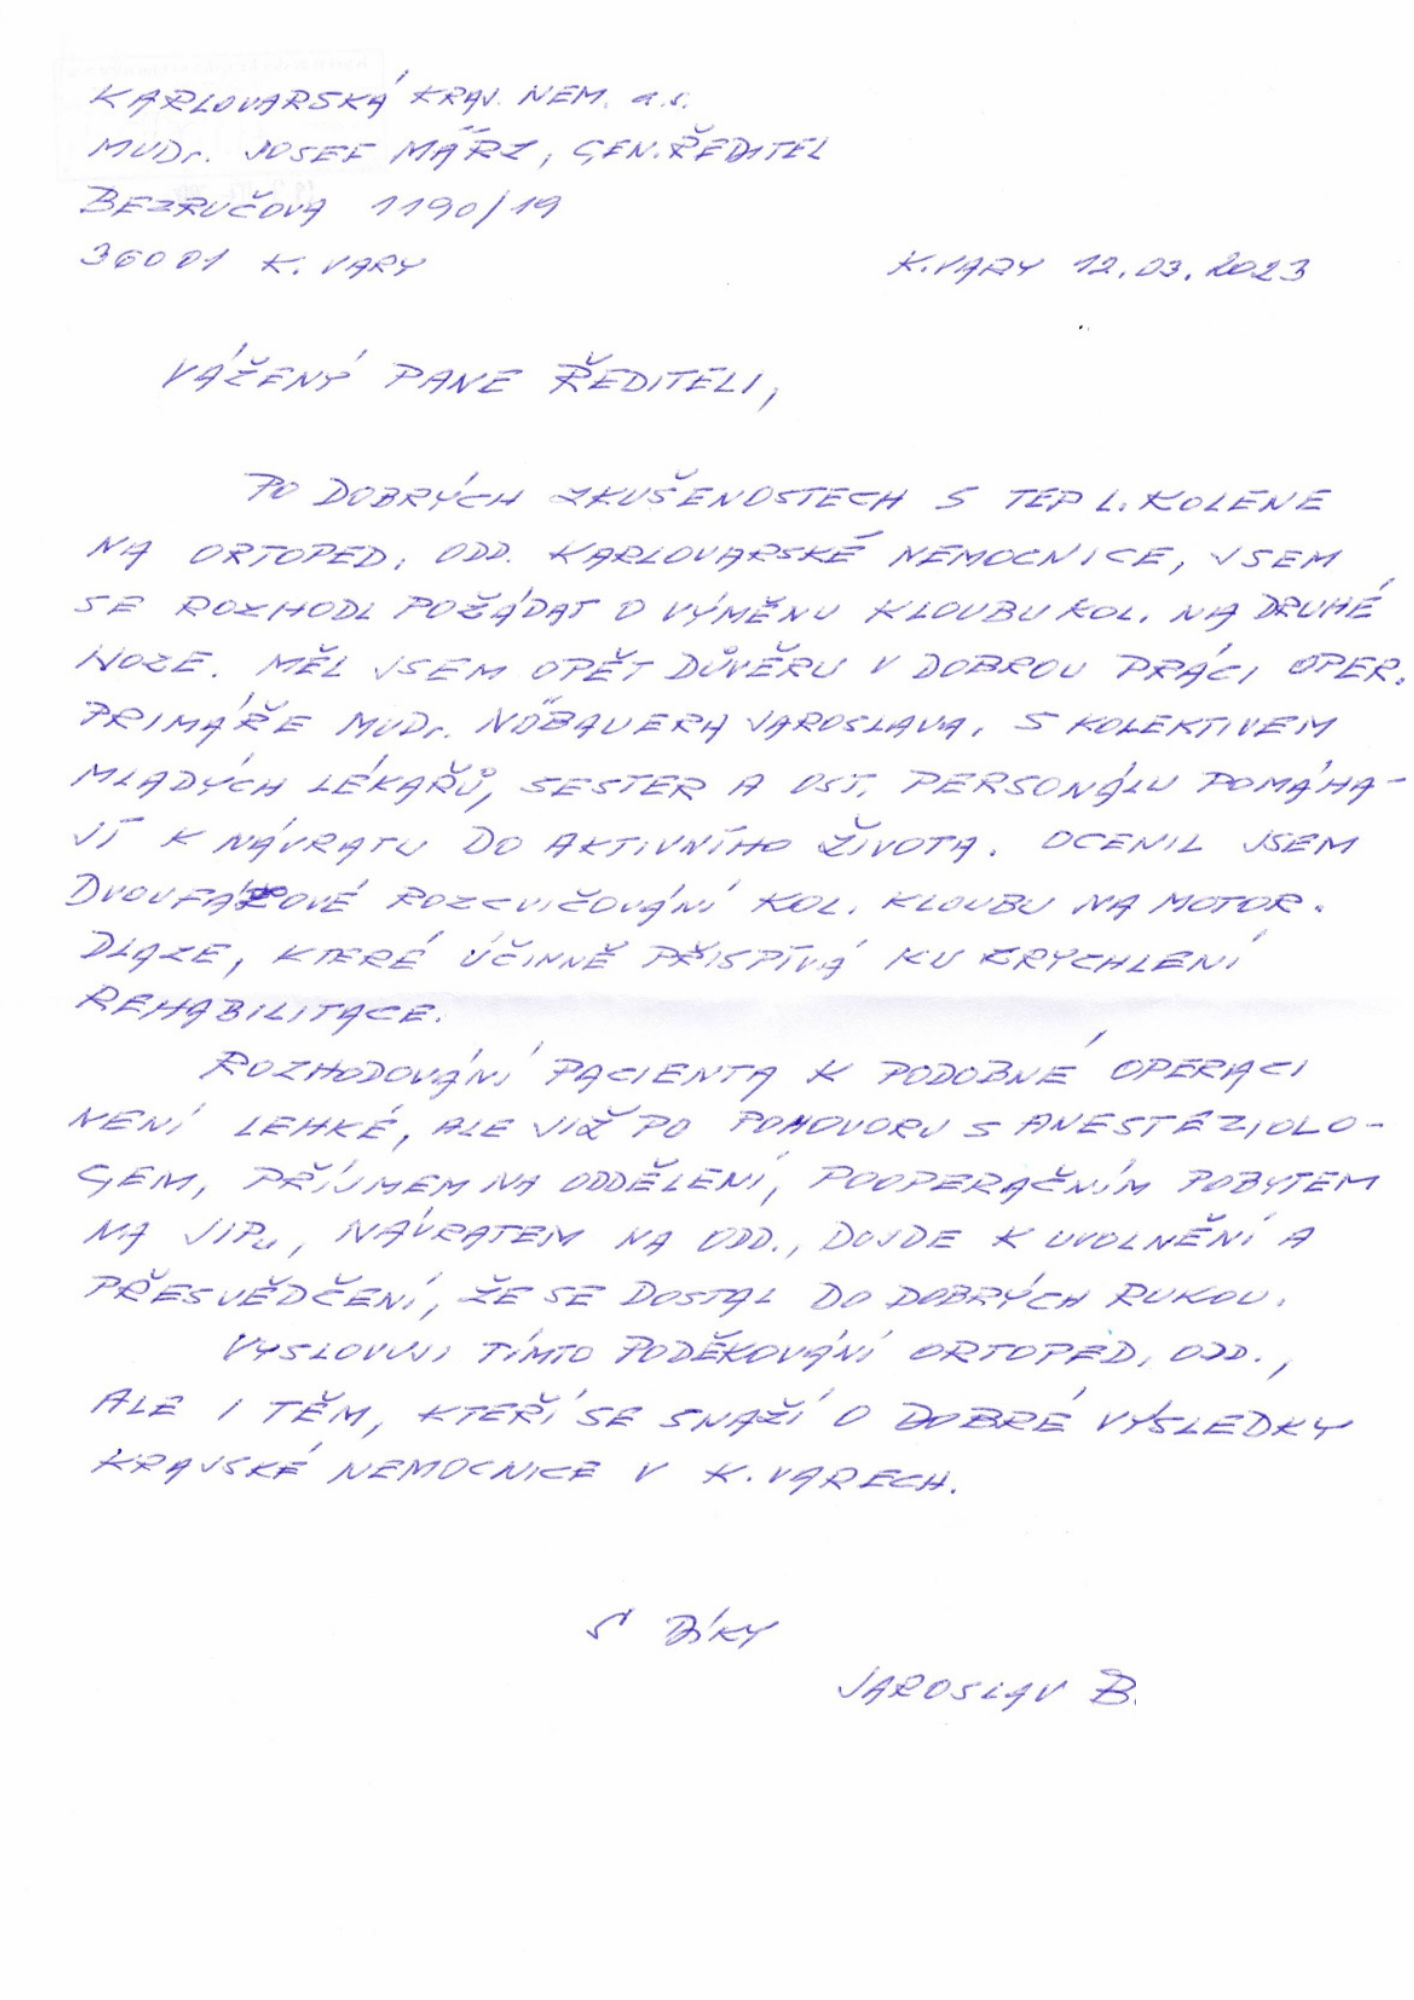 KARLOVARSKÁ KRAJ. NEM. a.s.
MUDr. JOSEF MÄRZ, GEN. ŘEDITEL
BEZRUČOVA 1190/19
36001 K. VARY
K. VARY 12.03.2023
VÁŽENÝ PANE ŘEDITELI,
PO DOBRÝCH ZKUŠENOSTECH S TEP L. KOLENE
NA ORTOPED. ODD. KARLOVARSKÉ NEMOCNICE, JSEM
SE ROZHODL POŽÁDAT O VÝMĚNU KLOUBU KOL. NA DRUHÉ
NOZE. MĚL JSEM OPĚT DŮVĚRU V DOBROU PRÁCI OPER.
PRIMÁŘE MUDr. NÖBAUERA JAROSLAVA. S KOLEKTIVEM
MLADÝCH LÉKAŘŮ, SESTER A OST. PERSONÁLU POMÁHA-
JÍ K NÁVRATU DO AKTIVNÍHO ŽIVOTA. OCENIL JSEM
DVOUFÁZOVÉ ROZCVIČOVÁNÍ KOL. KLOUBU NA MOTOR.
DLAZE, KTERÉ ÚČINNĚ PŘISPÍVÁ KU ZRYCHLENÍ
REHABILITACE.
ROZHODOVÁNÍ PACIENTA K PODOBNÉ OPERACI
NENÍ LEHKÉ, ALE JIŽ PO POHOVORU S ANESTÉZIOLO-
GEM, PŘÍJMEM NA ODDĚLENÍ, POOPERAČNÍM POBYTEM
NA JIPu, NÁVRATEM NA ODD., DOJDE K UVOLNĚNÍ A
PŘESVĚDČENÍ, ŽE SE DOSTAL DO DOBRÝCH RUKOU.
VYSLOVUJI TÍMTO PODĚKOVÁNÍ ORTOPED. ODD.,
ALE I TĚM, KTEŘÍ SE SNAŽÍ O DOBRÉ VÝSLEDKY
KRAJSKÉ NEMOCNICE V K. VARECH.
S DÍKY
JAROSLAV B.